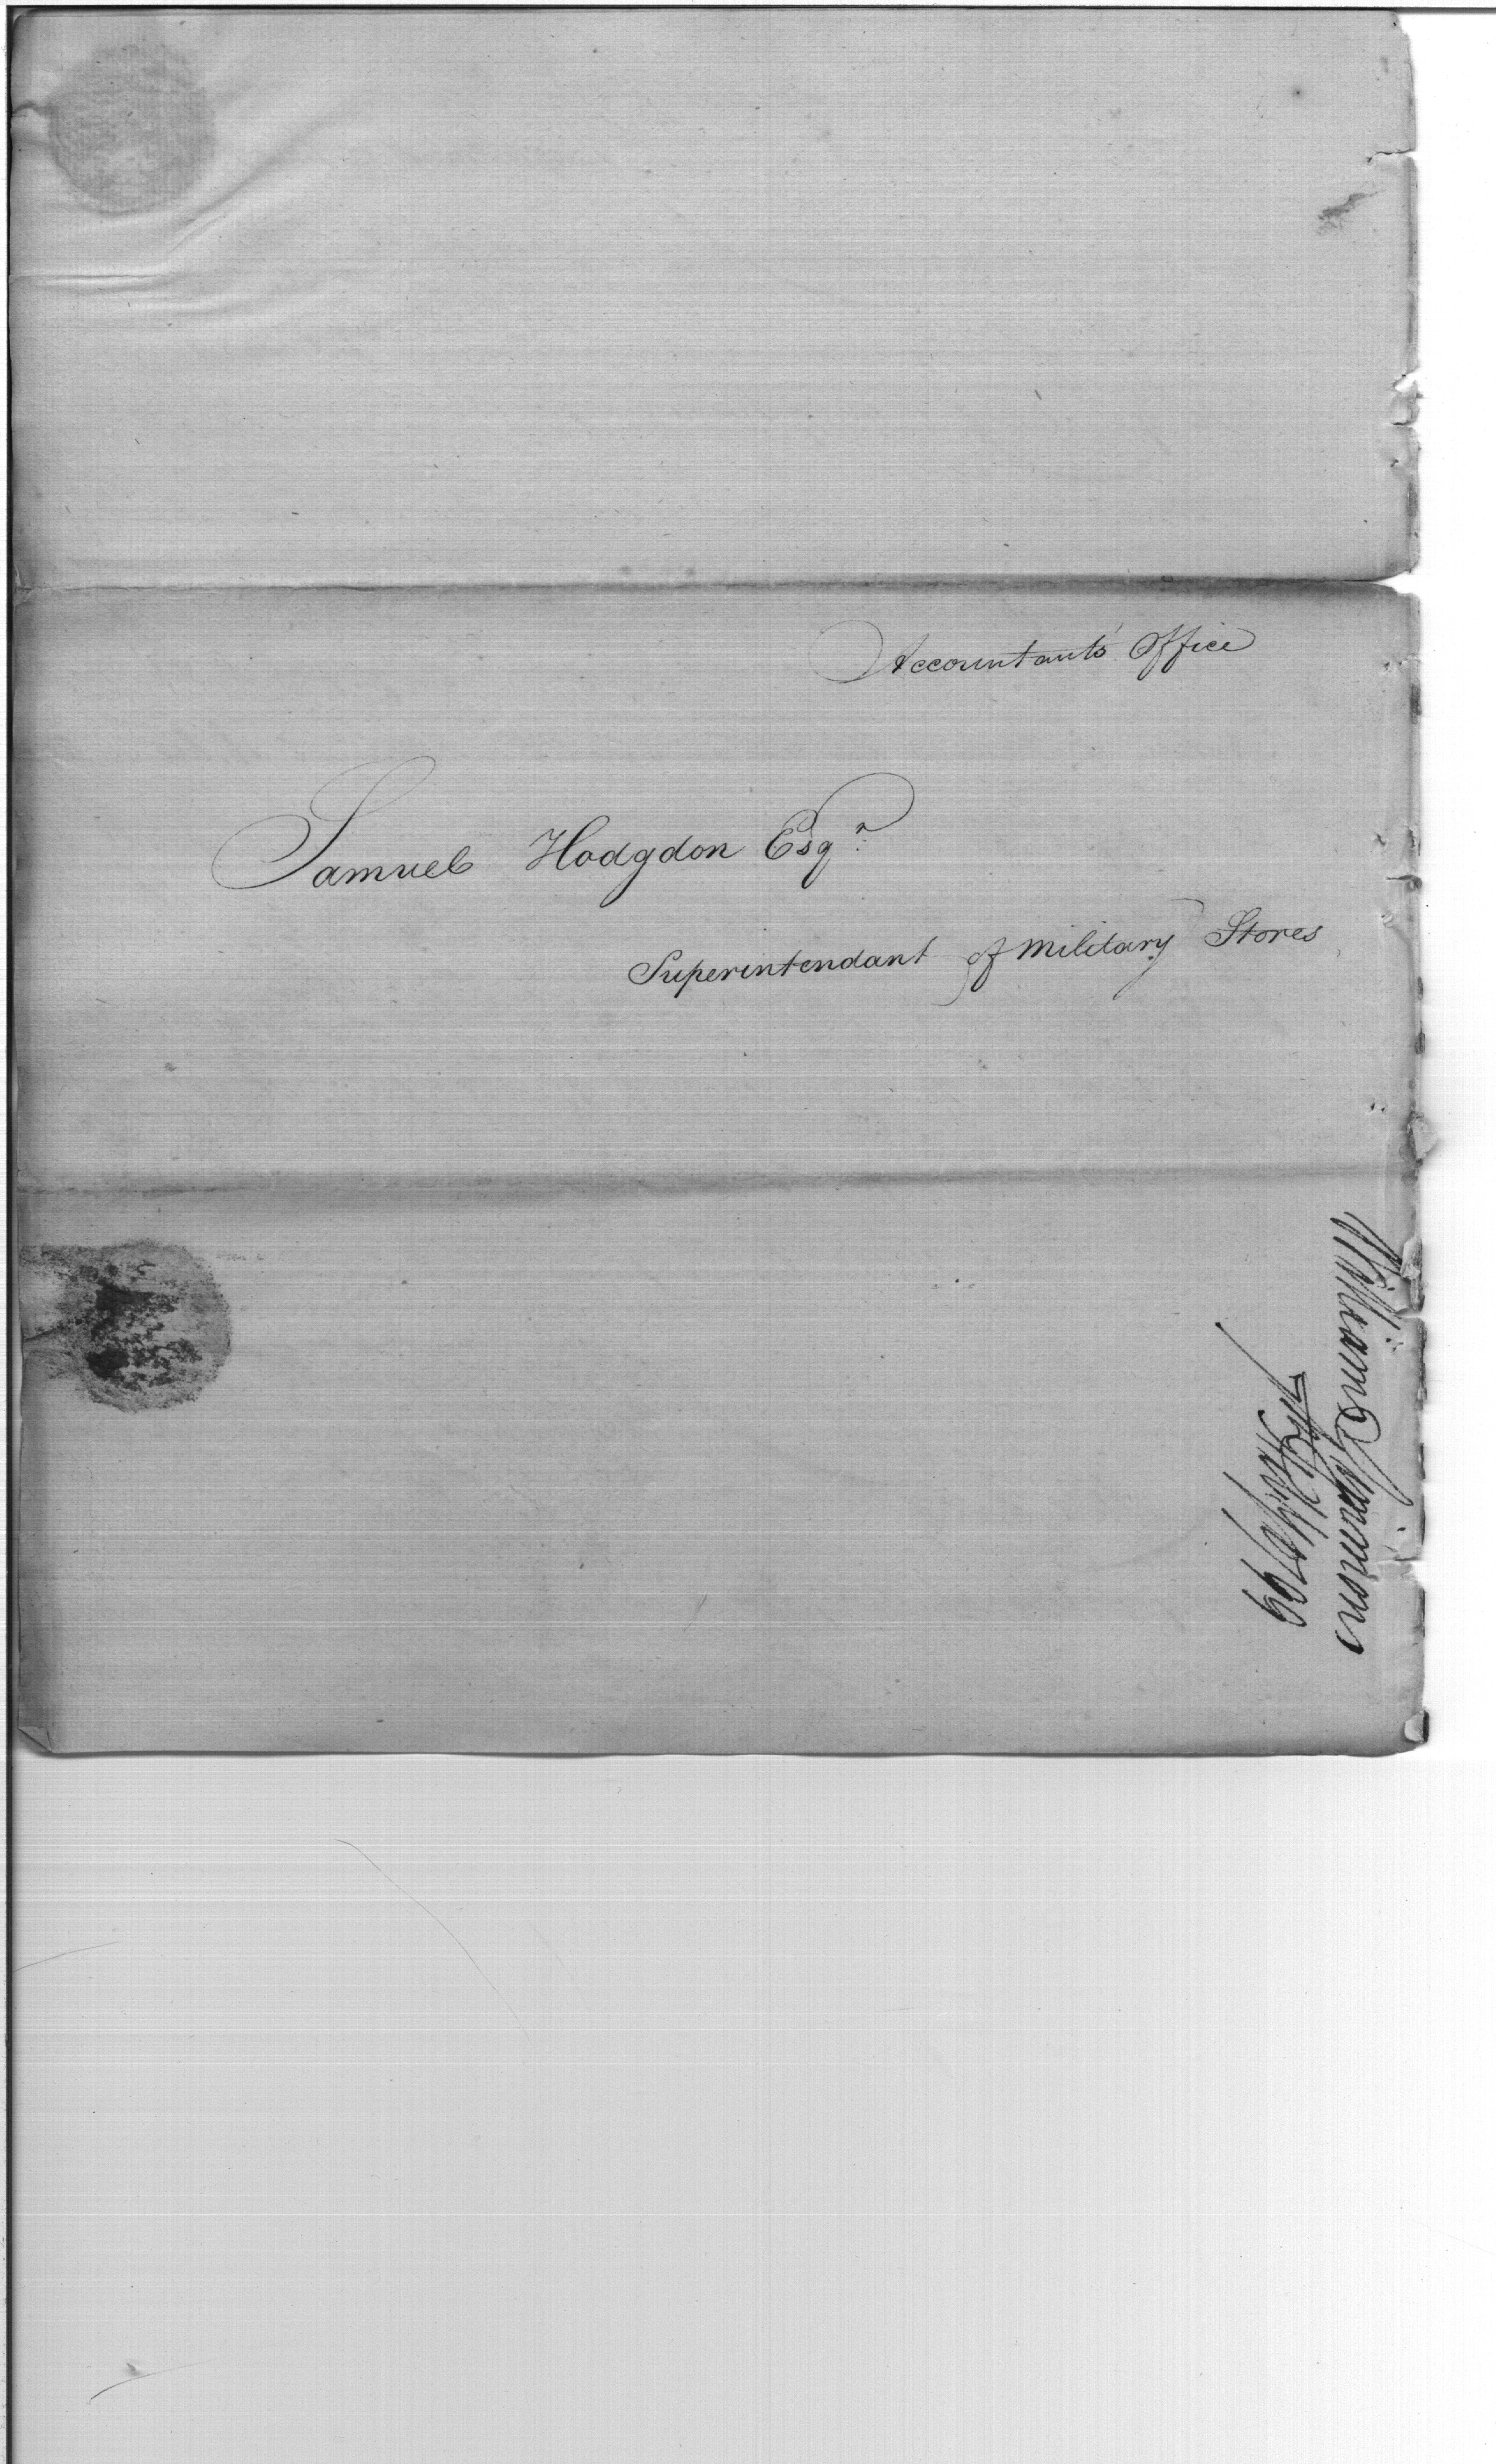 Accountants' Office
Samuel Hodgdon Esqr.
Superintendant of Military Stores
William Simmons
1799